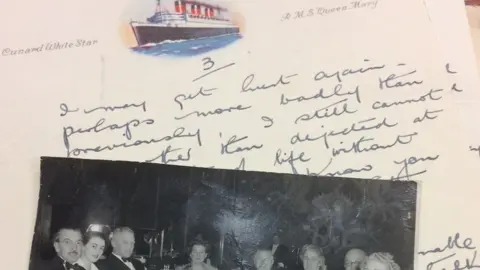 Cunard White Star
R.M.S. "Queen Mary"
3
I may get hurt again -
perhaps more badly than I
previously I still cannot
than dejected at
of life without
know you